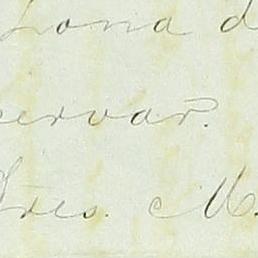 Lona d
ervar.
Tres. M.